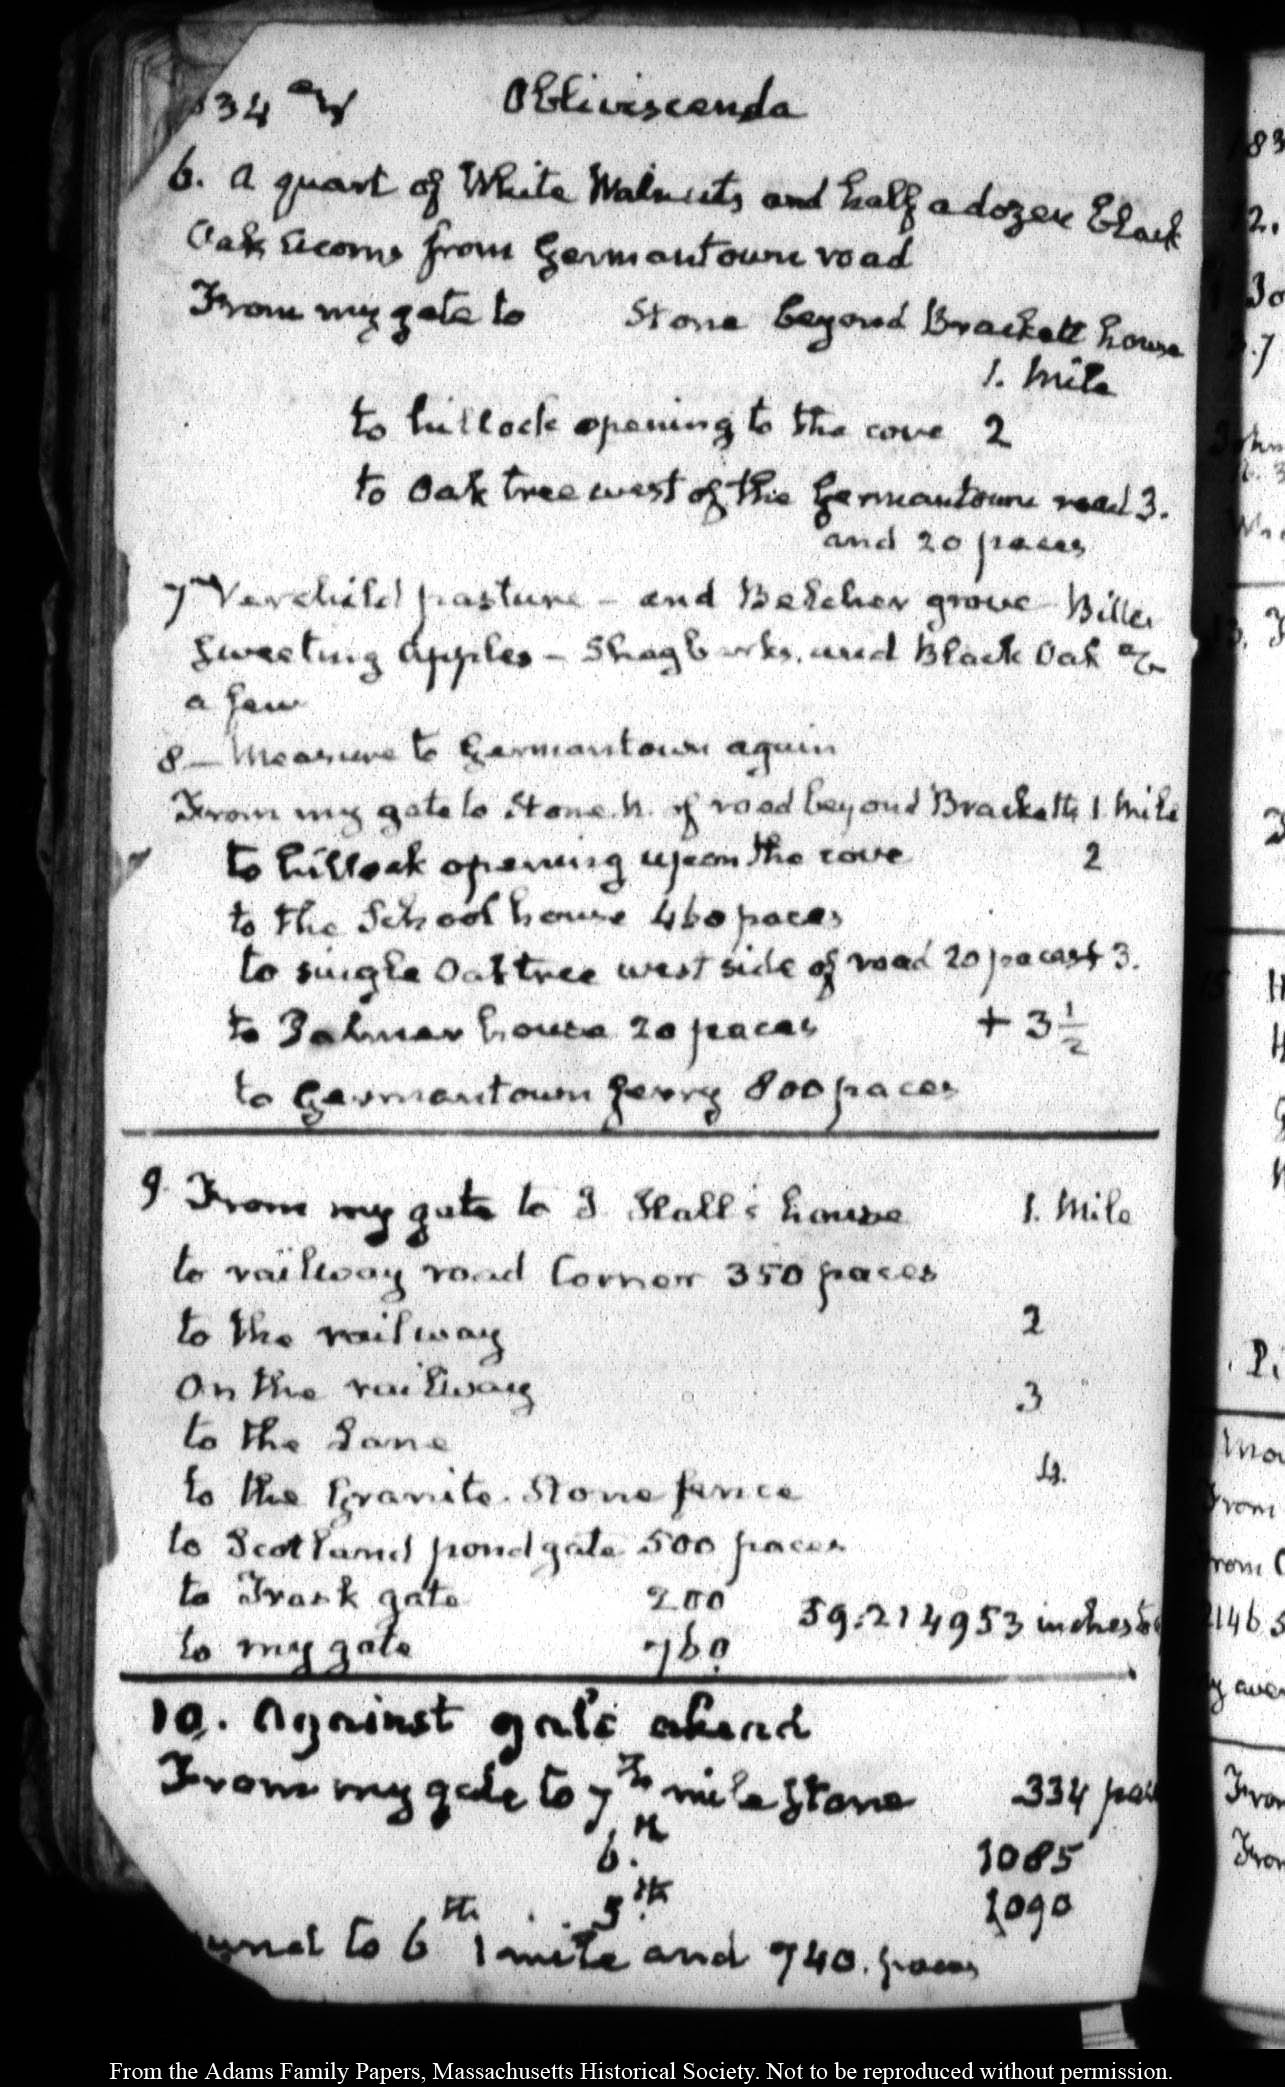 34 Obliviscenda
6. A quart of White Walnuts and half a dozen Black
Oak Acorns from Germantown road
From my gate to Stone beyond Brackett house
1. Mile
to hillock opening to the cove 2
to Oak tree west of the Germantown road 3.
and 20 paces
7 Verchild pasture - and Belcher grove - Billes
Sweeting Apples - Shagbarks, and Black Oak
a few
8 - Measure to Germantown again
From my gate to Stone. N. of road beyond Bracketts 1 Mile
to hillock opening upon the cove 2
to the School house 460 paces
to single Oak tree west side of road 20 paces + 3.
to Palmer house 20 paces + 3 1/2
to Germantown ferry 800 paces
9. From my gate to J Hall's house 1. Mile
to railway road Corner 350 paces
to the railway 2
On the railway 3
to the Lane
to the Granite Stone fence 4.
to Scotland pond gate 500 paces
to Trask gate 200 39.214953 inches to
to my gate 760.
10. Against gale ahead
From my gate to 7th mile stone 334 pac
6.th 1085
5th 1090
to 6th 1 mile and 740. paces
183
2.
30
.7
Mea
From
rom
2146.5
y aver
From
From
From the Adams Family Papers, Massachusetts Historical Society. Not to be reproduced without permission.